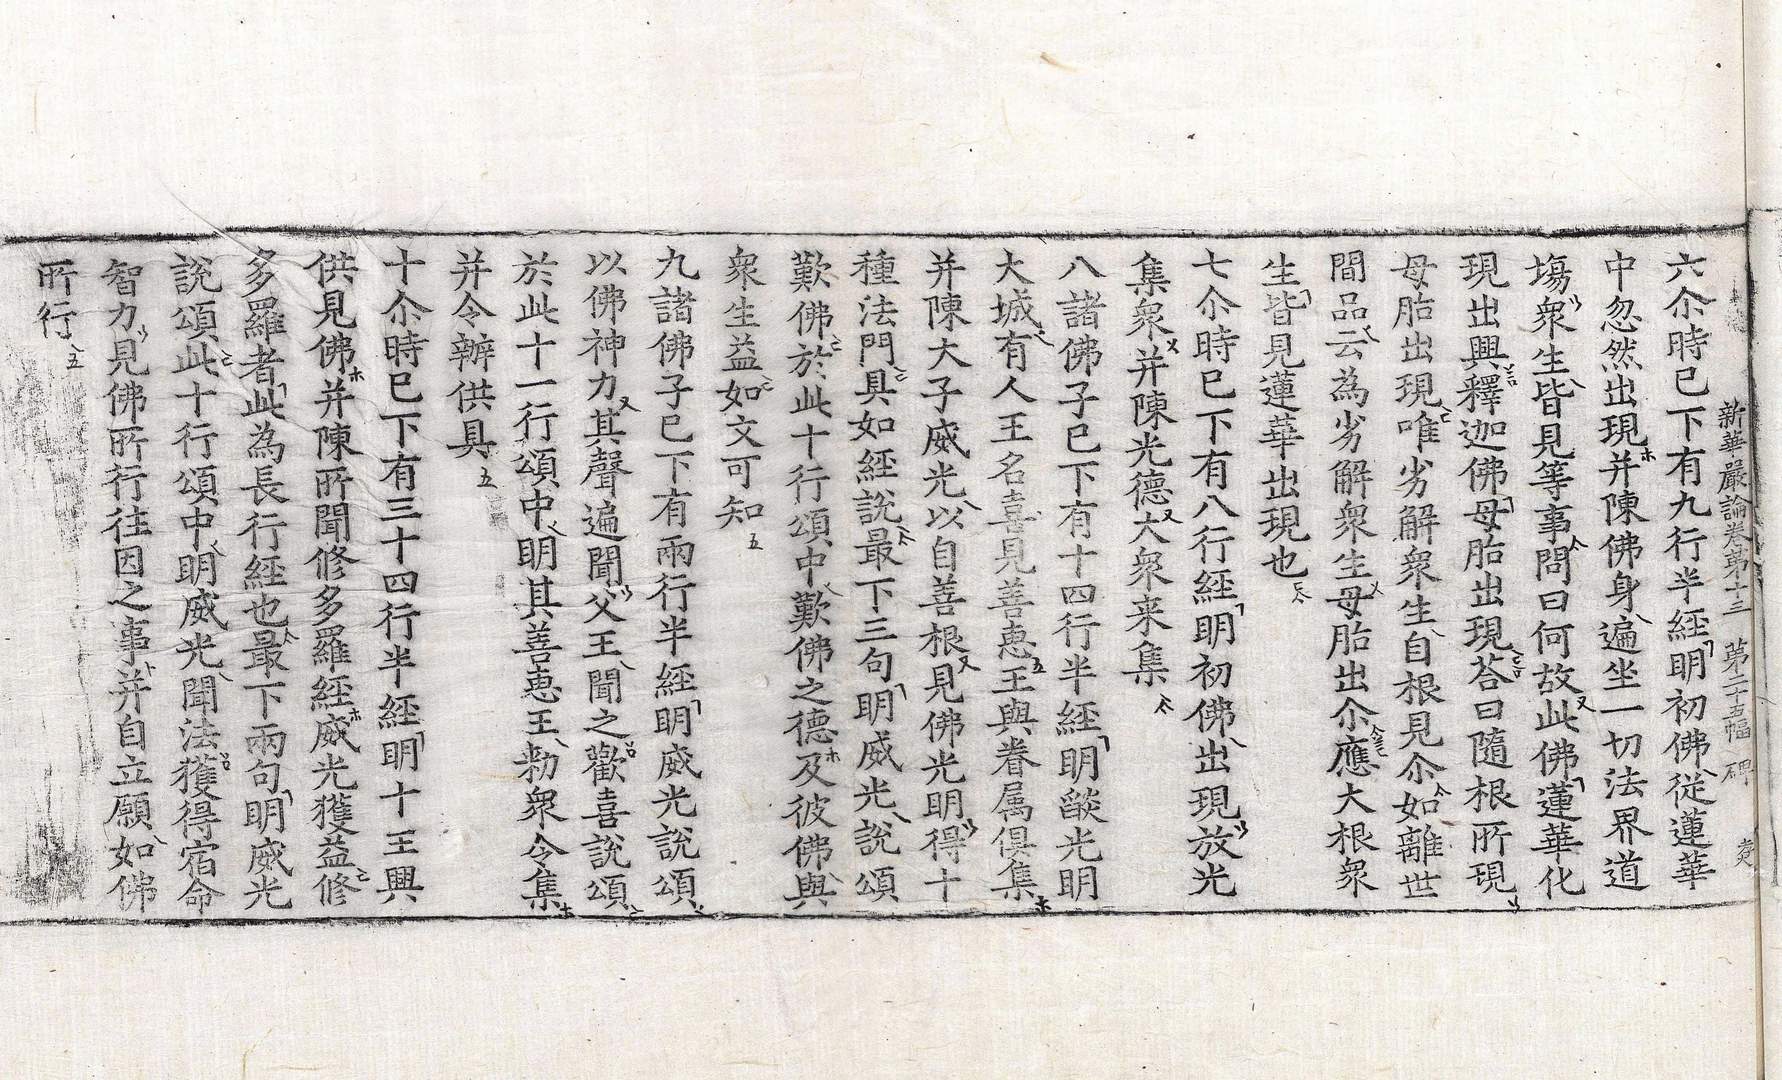 新華嚴論卷第十三　第二十五幅　碑
六尒時已下有九行半経明初佛從蓮華
中忽然出現并陳佛身遍坐一切法界道
塲衆生皆見等事問曰何故此佛蓮華化
現出興釋迦佛母胎出現荅曰隨根所現
母胎出現唯劣解衆生自根見尒如離世
間品云為劣解衆生母胎出尒應大根衆
生皆見蓮華出現也
七尒時已下有八行經明初佛出現放光
集衆并陳光德大衆来集
八諸佛子已下有十四行半経明燄光明
大城有人王名喜見善恵王與眷属俱集
并陳大子威光以自善根見佛光明得十
種法門具如經説最下三句明威光說頌
歎佛於此十行頌中歎佛之德及彼佛與
衆生益如文可知
九諸佛子已下有兩行半經明威光説頌
以佛神力其聲遍聞父王聞之歡喜說頌
於此十一行頌中明其善恵王勑衆令集
并令辦供具
十尒時已下有三十四行半經明十王興
供見佛并陳所聞修多羅經威光獲益修
多羅者此為長行經也最下兩句明威光
説頌此十行頌中明威光聞法獲得宿命
智力見佛所行往因之事并自立願如佛
所行